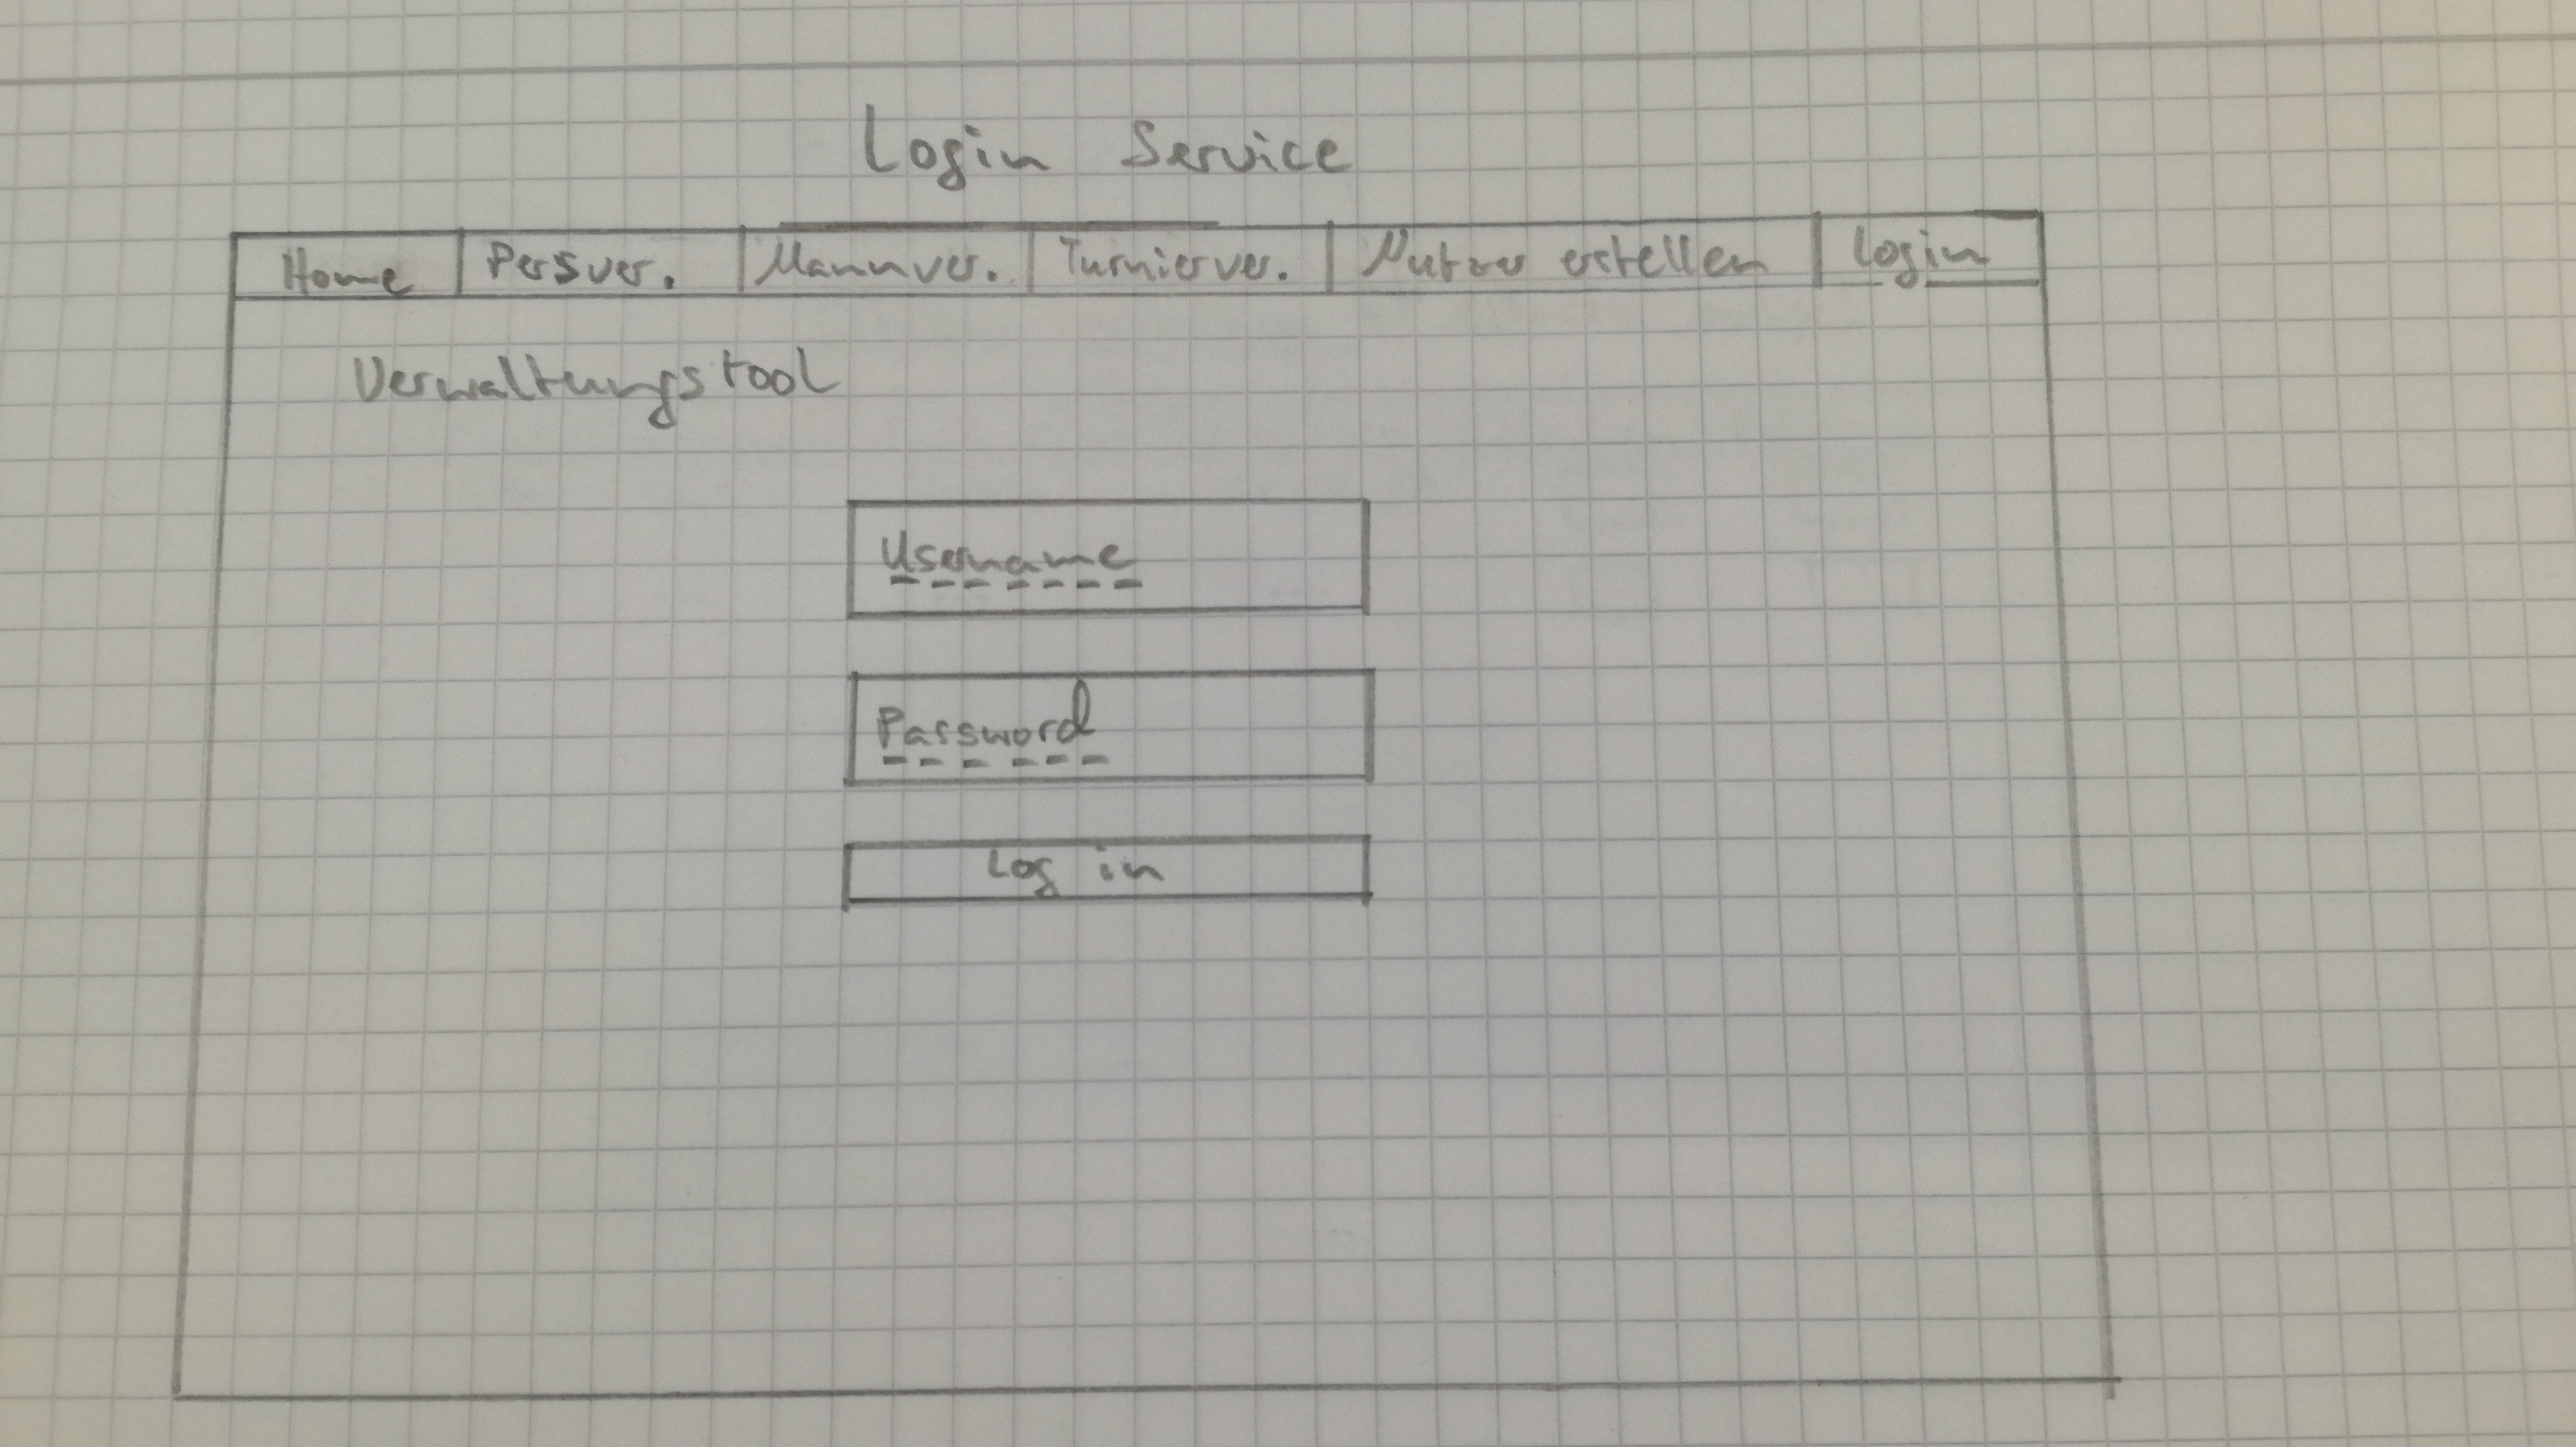 Login Service
Home Persver. Mannver. Turnierver. Nutzer erstellen Login
Verwaltungstool
Username
Password
Log in